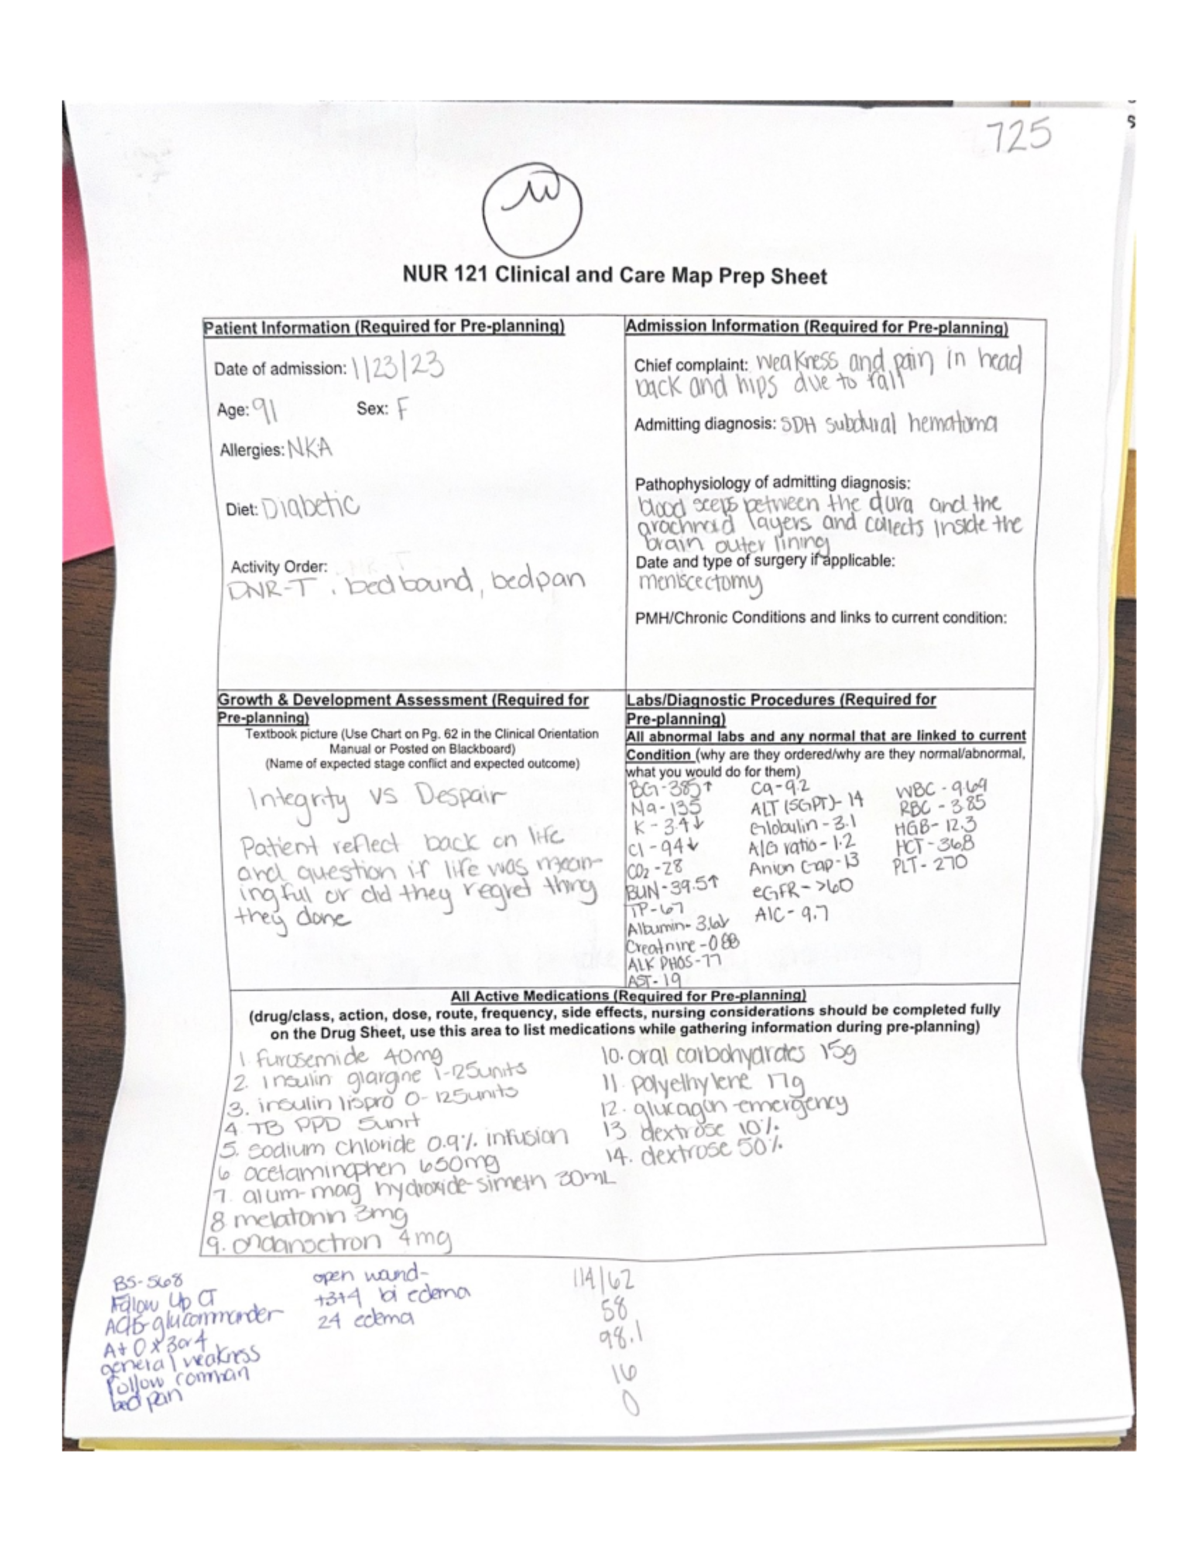 725
NUR 121 Clinical and Care Map Prep Sheet
Patient Information (Required for Pre-planning)
Date of admission: 1/23/23
Age: 91 Sex: F
Allergies: NKA
Diet: Diabetic
Activity Order:
DNR-T, bedbound, bedpan
Admission Information (Required for Pre-planning)
Chief complaint: weakness and pain in head
back and hips due to fall
Admitting diagnosis: SDH subdural hematoma
Pathophysiology of admitting diagnosis:
blood seeps between the dura and the
arachnoid layers and collects inside the
brain outer lining
Date and type of surgery if applicable:
meniscectomy
PMH/Chronic Conditions and links to current condition:
Growth & Development Assessment (Required for
Pre-planning)
Textbook picture (Use Chart on Pg. 62 in the Clinical Orientation
Manual or Posted on Blackboard)
(Name of expected stage conflict and expected outcome)
Integrity vs Despair
Patient reflect back on life
and question if life was mean-
ingful or did they regret thing
they done
Labs/Diagnostic Procedures (Required for
Pre-planning)
All abnormal labs and any normal that are linked to current
Condition (why are they ordered/why are they normal/abnormal,
what you would do for them)
BG-385↑
Na-135
K-3.4↓
Cl-94↓
CO2-28
BUN-39.5↑
TP-6.7
Albumin-3.6↓
Creatnine-0.88
ALK PHOS-77
AST-19
Ca-9.2
ALT (SGPT)-14
Globulin-3.1
A/G ratio-1.2
Anion Gap-13
eGFR->60
A1C-9.7
WBC-9.69
RBC-3.85
HGB-12.3
HCT-36.8
PLT-270
All Active Medications (Required for Pre-planning)
(drug/class, action, dose, route, frequency, side effects, nursing considerations should be completed fully
on the Drug Sheet, use this area to list medications while gathering information during pre-planning)
1 furosemide 40mg
2. insulin glargine 1-125units
3. insulin lispro 0-125units
4 TB PPD 5unit
5. sodium chloride 0.9% infusion
6 acetaminophen 650mg
7. alum-mag hydroxide-simeth 30mL
8 melatonin 3mg
9. ondansetron 4mg
10. oral carbohydrates 15g
11. polyethylene 17g
12. glucagon-emergency
13. dextrose 10%
14. dextrose 50%
BS-568
Follow Up CT
glucommander
A+O x 3or4
general weakness
follow comman
bed pan
open wand-
+3+4 bi edema
24 edema
114/62
58
98.1
16
0